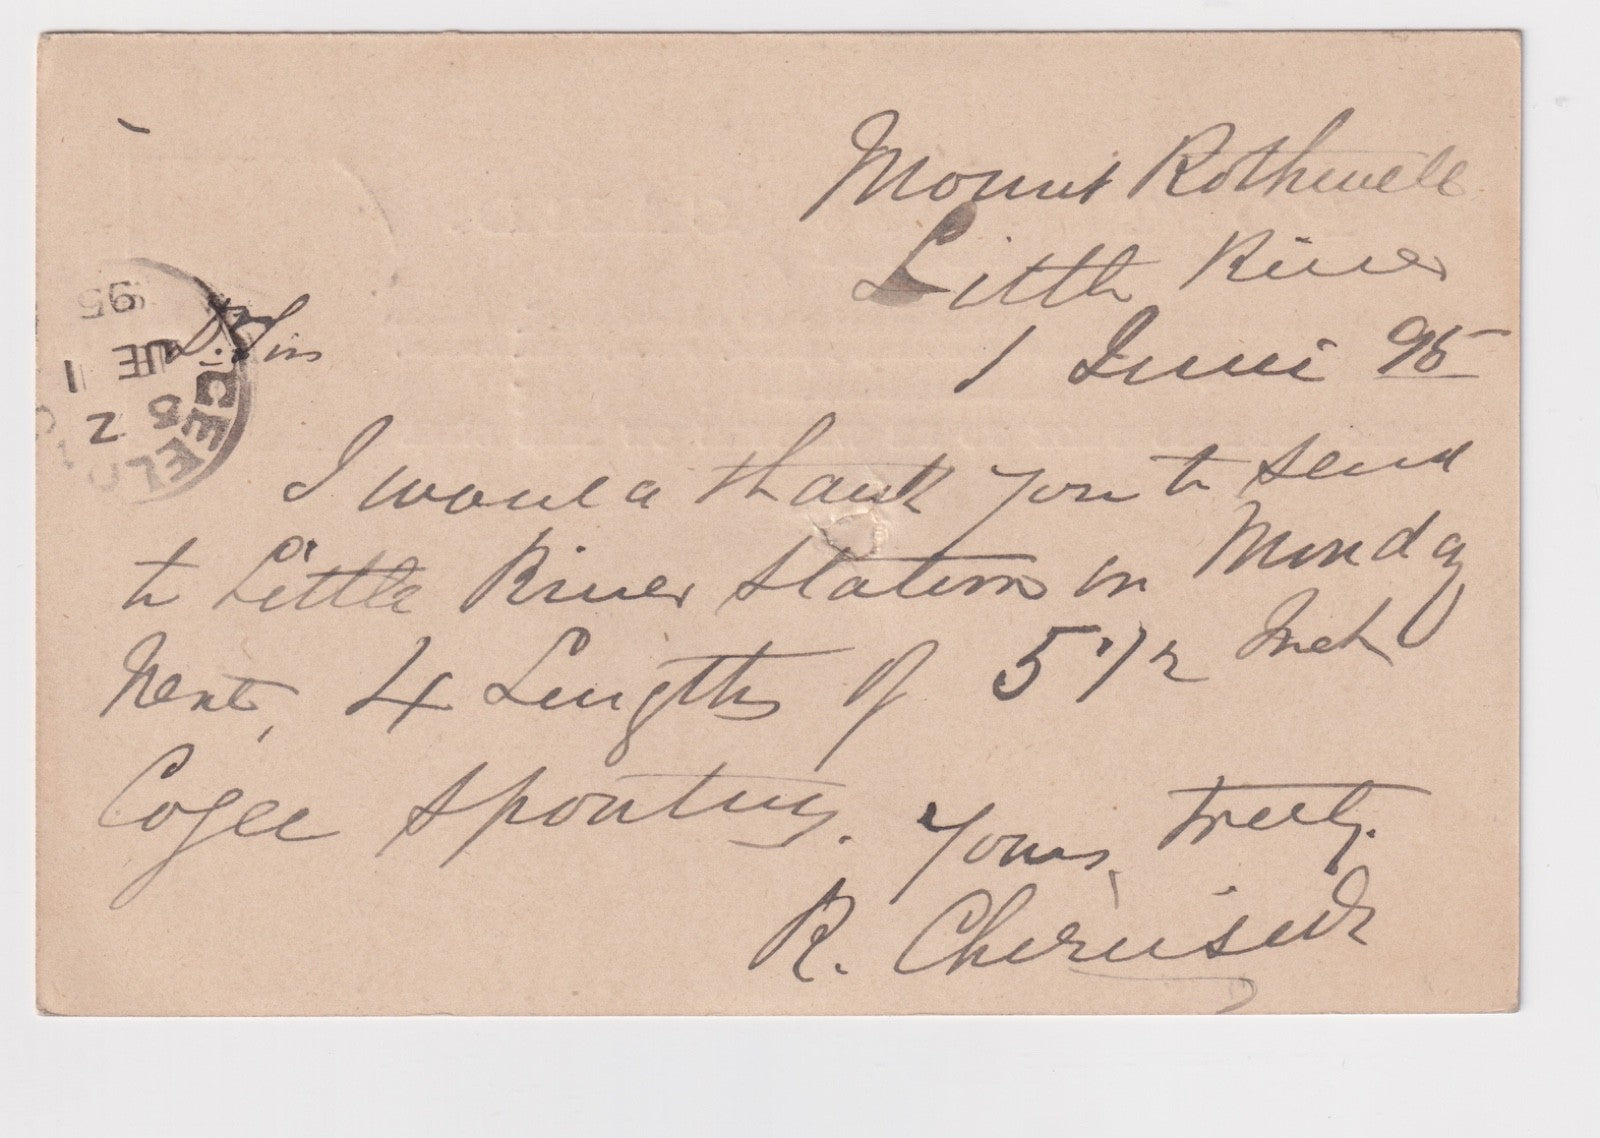 Mount Rothwell
Little River
1 June 95
D. Sir
I would thank you to send
to Little River Station on Monday
Next, 4 Lengths of 5 1/2 Inch
Ogee spouting.
Yours, truly.
R.
GEELO
2
JE 1
95